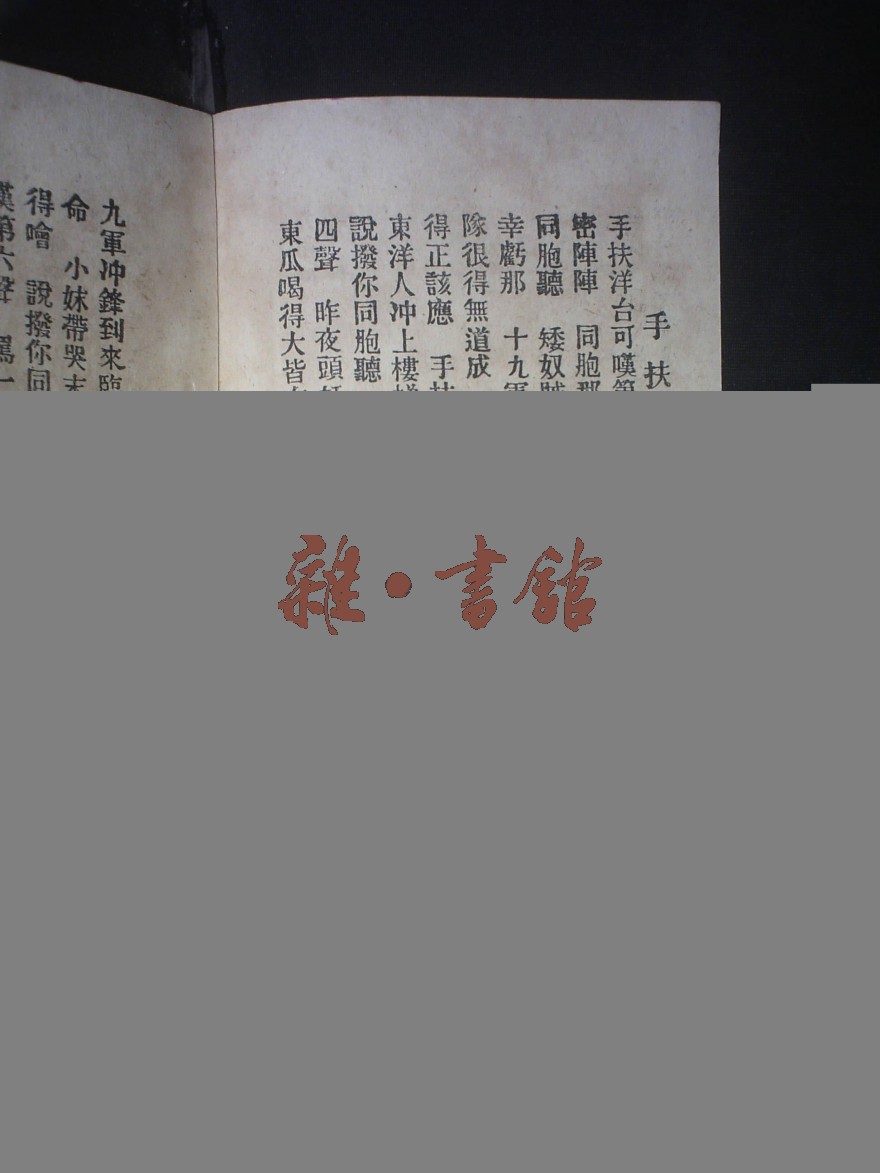 手扶
手扶洋台可嘆第
密陣陣 同胞那
同胞聽 矮奴賊
幸虧那 十九軍
隊很得無道成
得正該應 手扶
東洋人冲上樓梯
說撥你同胞聽
四聲 昨夜頭
東瓜喝得大皆
九軍冲鋒到來臨
命 小妹帶哭末
得噲 說撥你同
嘆第六聲 罵一
雜·書館